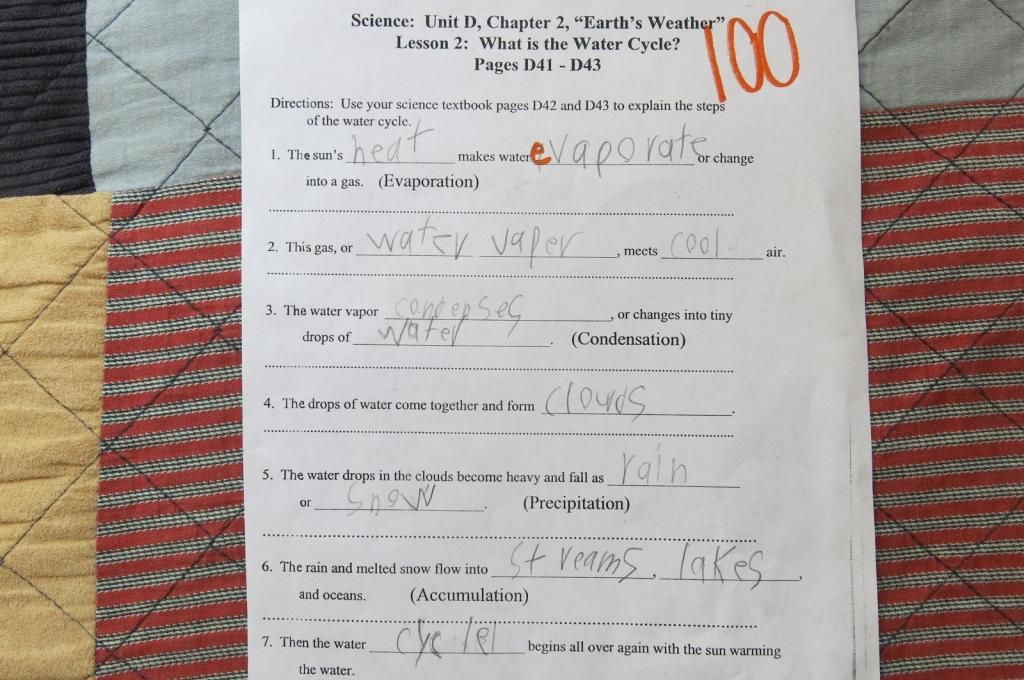 Science: Unit D, Chapter 2, “Earth’s Weather”
100
Lesson 2: What is the Water Cycle?
Pages D41 - D43
Directions: Use your science textbook pages D42 and D43 to explain the steps
of the water cycle.
1. The sun’s heat makes water evaporate or change
into a gas. (Evaporation)
2. This gas, or water vaper, meets cool air.
3. The water vapor condenses, or changes into tiny
drops of water. (Condensation)
4. The drops of water come together and form clouds.
5. The water drops in the clouds become heavy and fall as rain
or snow. (Precipitation)
6. The rain and melted snow flow into streams, lakes,
and oceans. (Accumulation)
7. Then the water cyclel begins all over again with the sun warming
the water.